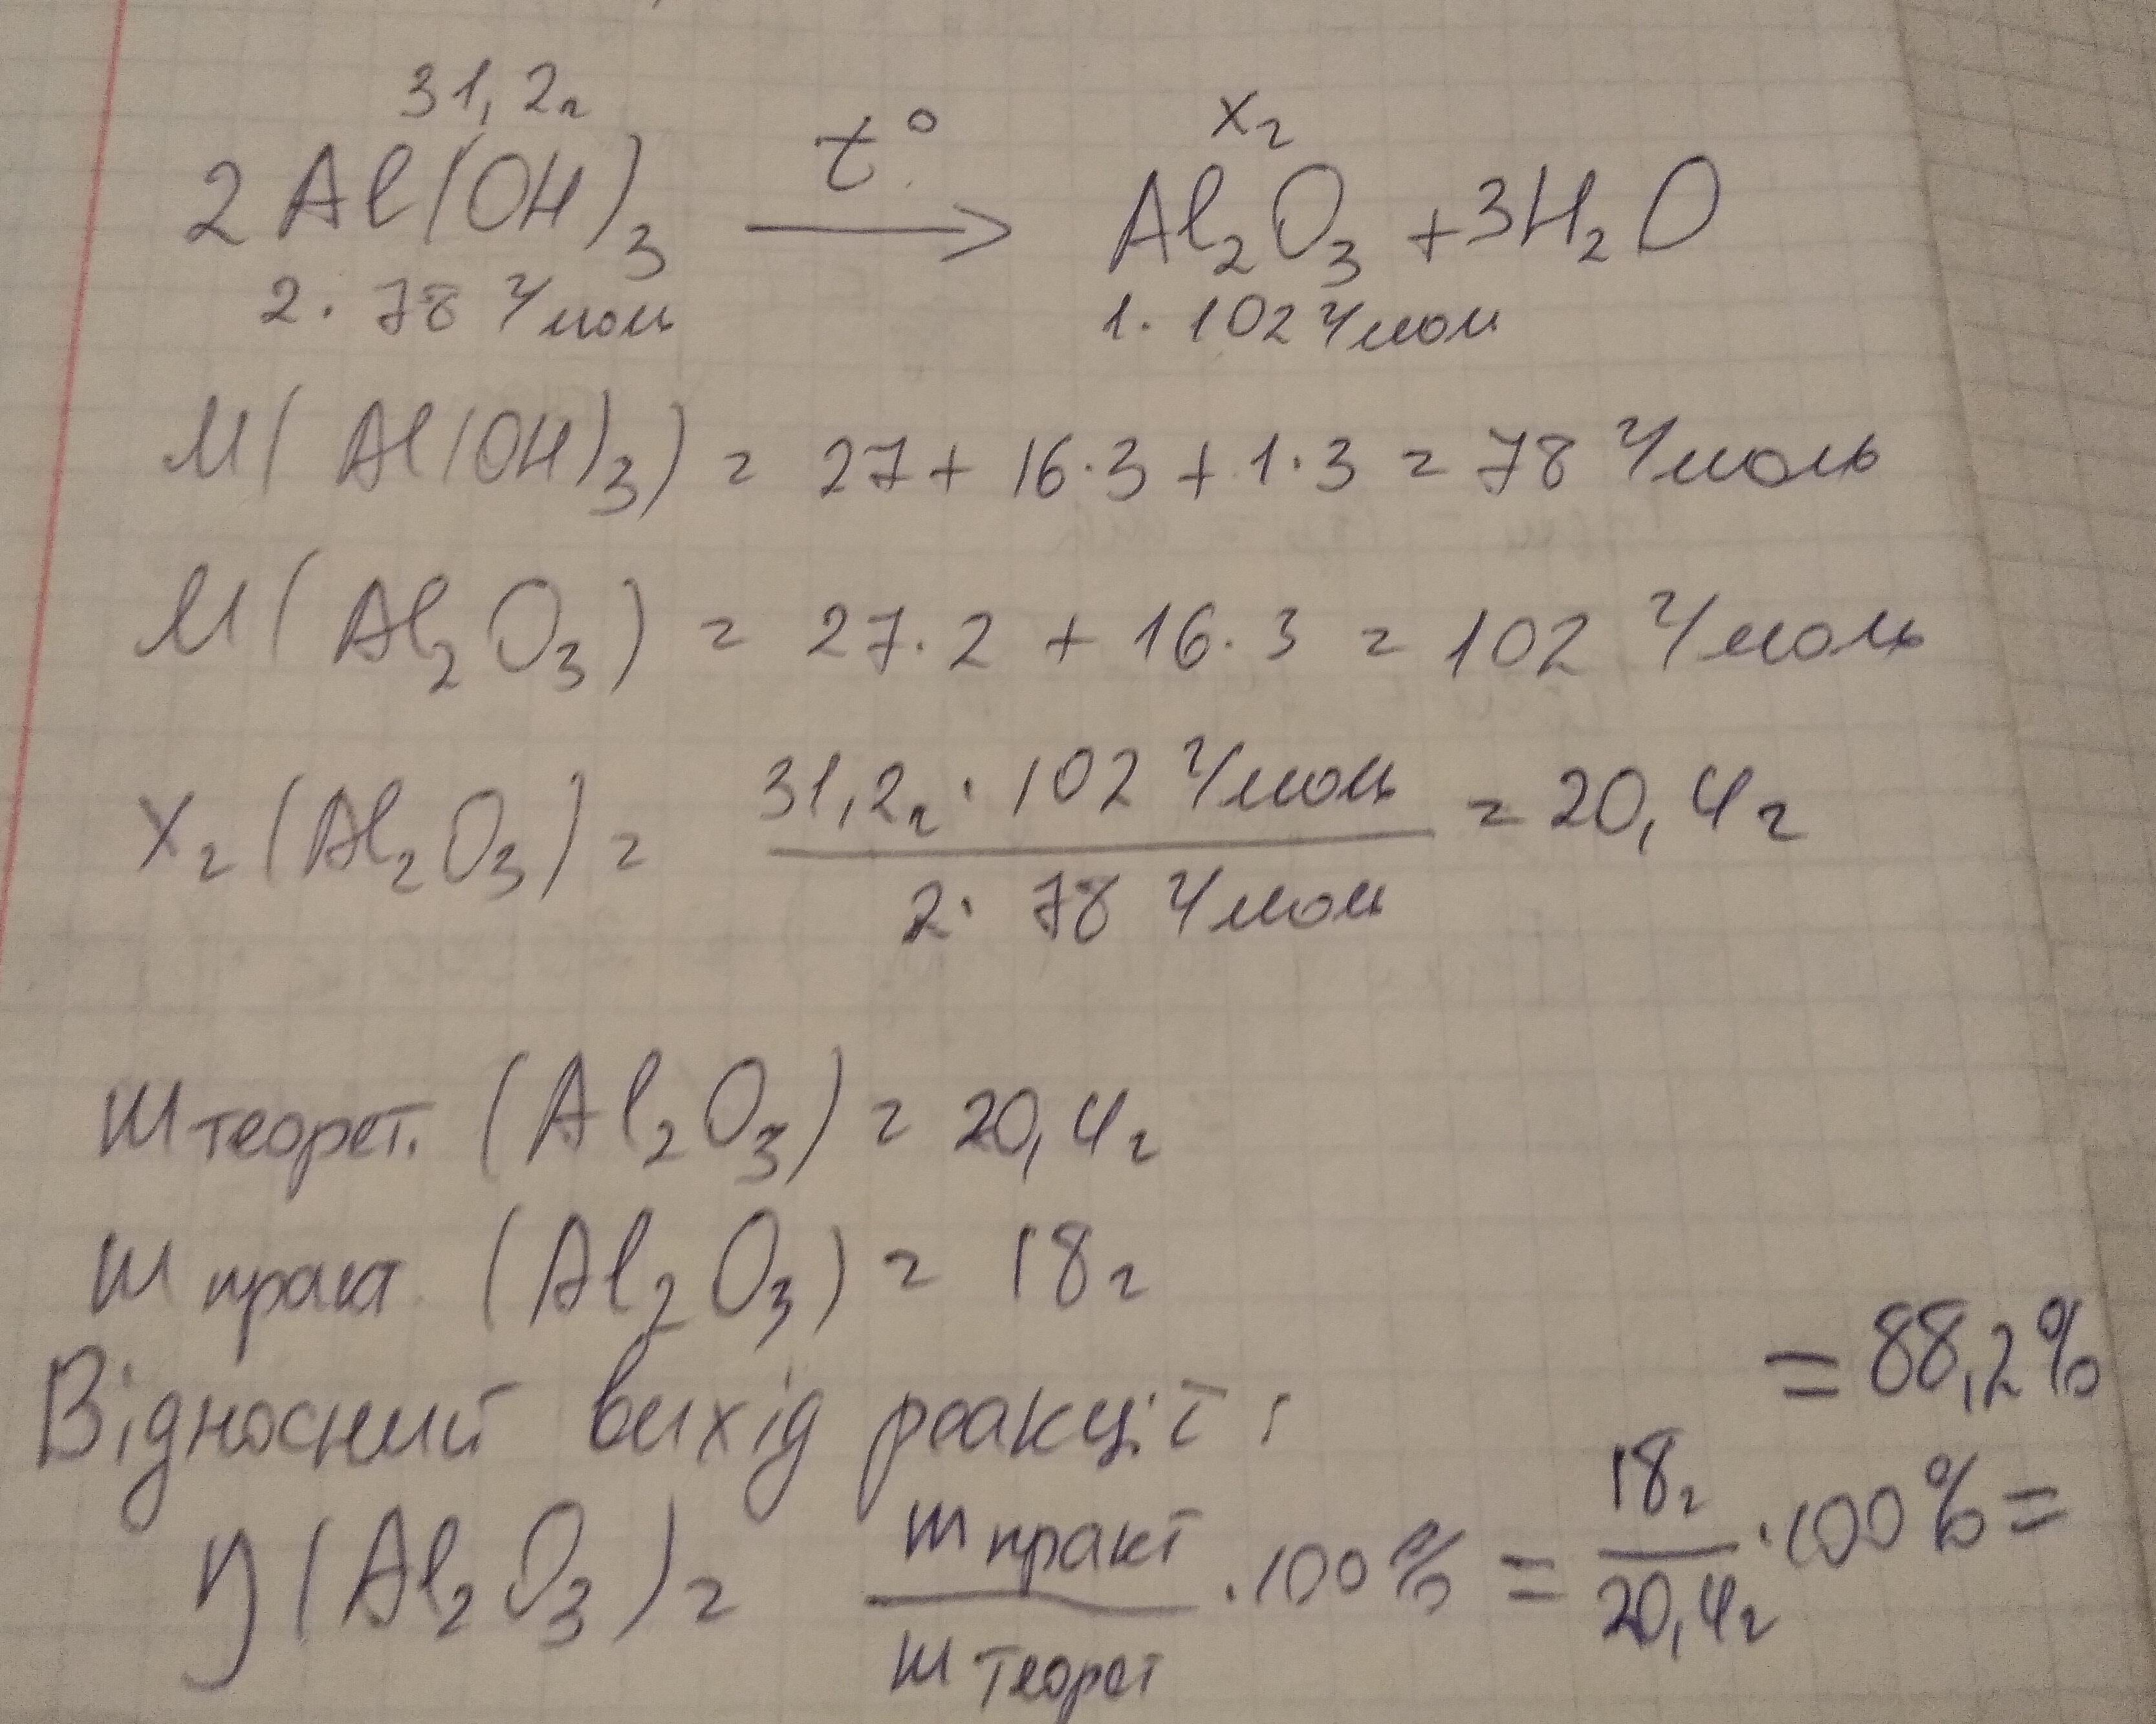 31,2г хг
2Al(OH)₃ t° → Al₂O₃ + 3H₂O
2·78 г/моль 1·102 г/моль
M(Al(OH)₃) = 27 + 16·3 + 1·3 = 78 г/моль
M(Al₂O₃) = 27·2 + 16·3 = 102 г/моль
xг(Al₂O₃) = 31,2г · 102 г/моль / 2·78 г/моль = 20,4г
m теорет. (Al₂O₃) = 20,4г
m практ. (Al₂O₃) = 18г
Відносний вихід реакції:
η(Al₂O₃) = m практ / m теорет · 100% = 18г / 20,4г · 100% =
= 88,2%